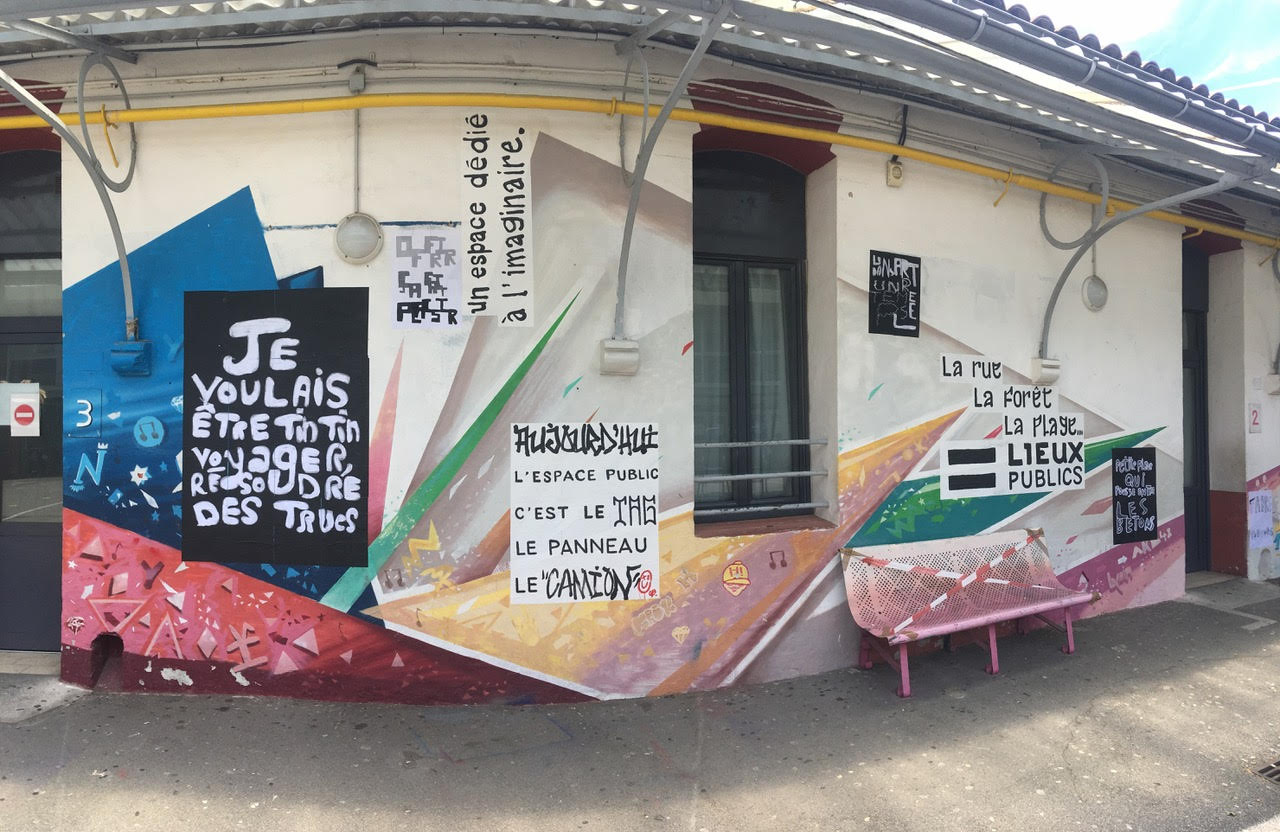 3
N
JE
VOULAIS
ÊTRE TINTIN
VOYAGER,
RÉSOUDRE
DES TRUCS
un espace dédié
à l'imaginaire.
AUJOURD'HUI
L'ESPACE PUBLIC
C'EST LE TAG
LE PANNEAU
LE "CAMION"
HI
La rue
La forêt
La plage...
= LIEUX
PUBLICS
Petite plante
QUI
POUSSE ENTRE
LES
BÉTONS
2